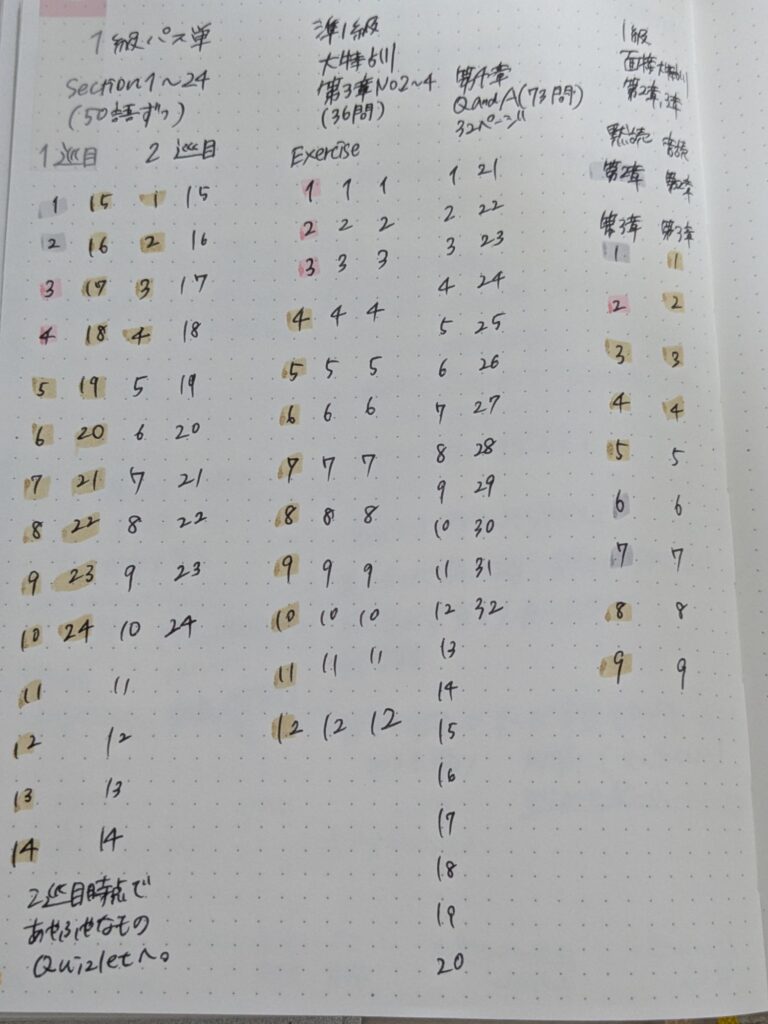 1級パス単
Section1～24
(50語ずつ)
1巡目 2巡目
1 15 1 15
2 16 2 16
3 17 3 17
4 18 4 18
5 19 5 19
6 20 6 20
7 21 7 21
8 22 8 22
9 23 9 23
10 24 10 24
11 11
12 12
13 13
14 14
2巡目時点で
あやふやなもの
Quizletへ。
準1級
大特訓
第3章No2～4
(36問)
Exercise
1 1 1
2 2 2
3 3 3
4 4 4
5 5 5
6 6 6
7 7 7
8 8 8
9 9 9
10 10 10
11 11 11
12 12 12
第4章
QandA(73問)
32ページ
1 21
2 22
3 23
4 24
5 25
6 26
7 27
8 28
9 29
10 30
11 31
12 32
13
14
15
16
17
18
19
20
1級
面接大特訓
第2章,3章
黙読 音読
第2章 第2章
第3章 第3章
1 1
2 2
3 3
4 4
5 5
6 6
7 7
8 8
9 9